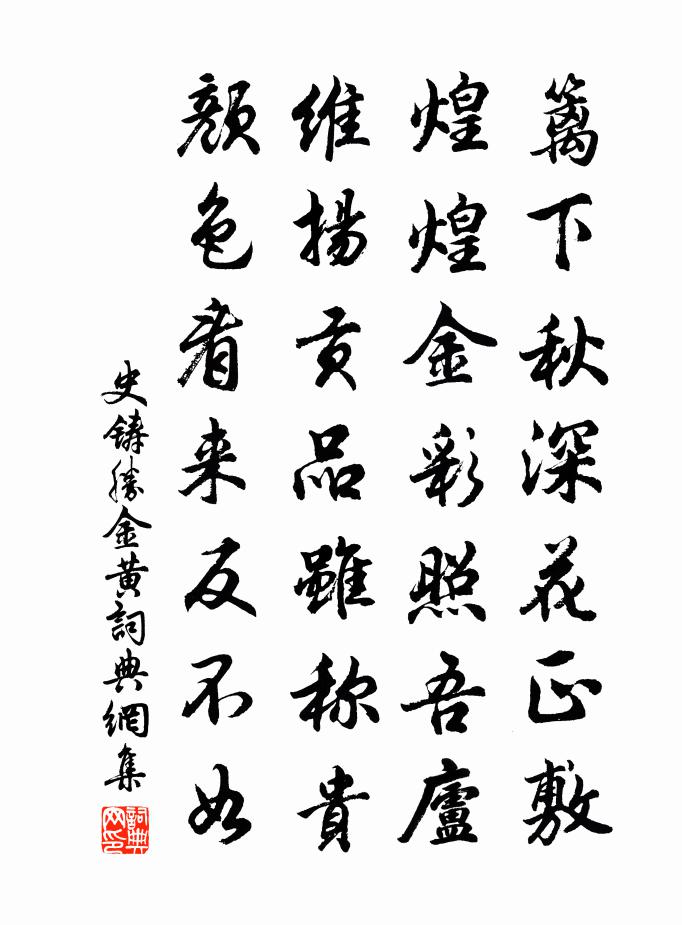 籬下秋深花正敷
煌煌金彩照吾廬
維揚貢品雖称貴
顏色看来反不如
史鑄勝金黃詞典網集
詞典网印